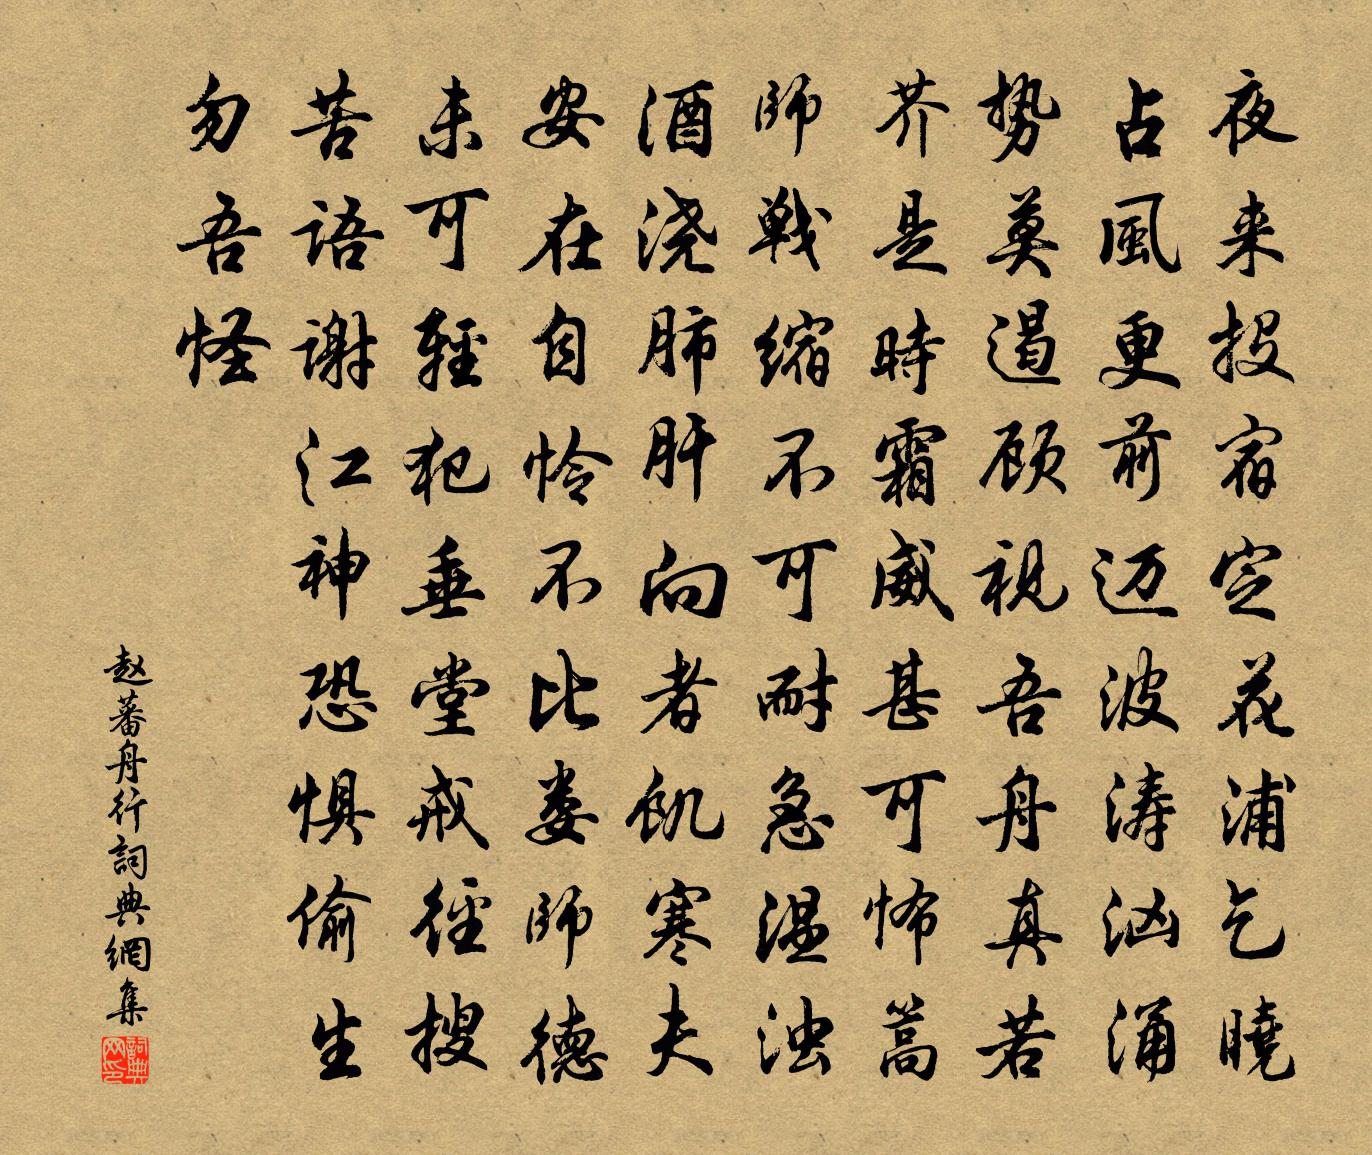 夜来投宿定花浦乞曉
占風更前迈波涛汹涌
势莫遏顾視吾舟真若
芥是時霜威甚可怖篙
師戦缩不可耐急温浊
酒浇肺肝向者飢寒夫
安在自怜不比娄師德
未可輕犯垂堂戒徑搜
苦語谢江神恐惧偷生
勿吾怪
赵蕃舟行詞典網集
詞典网印